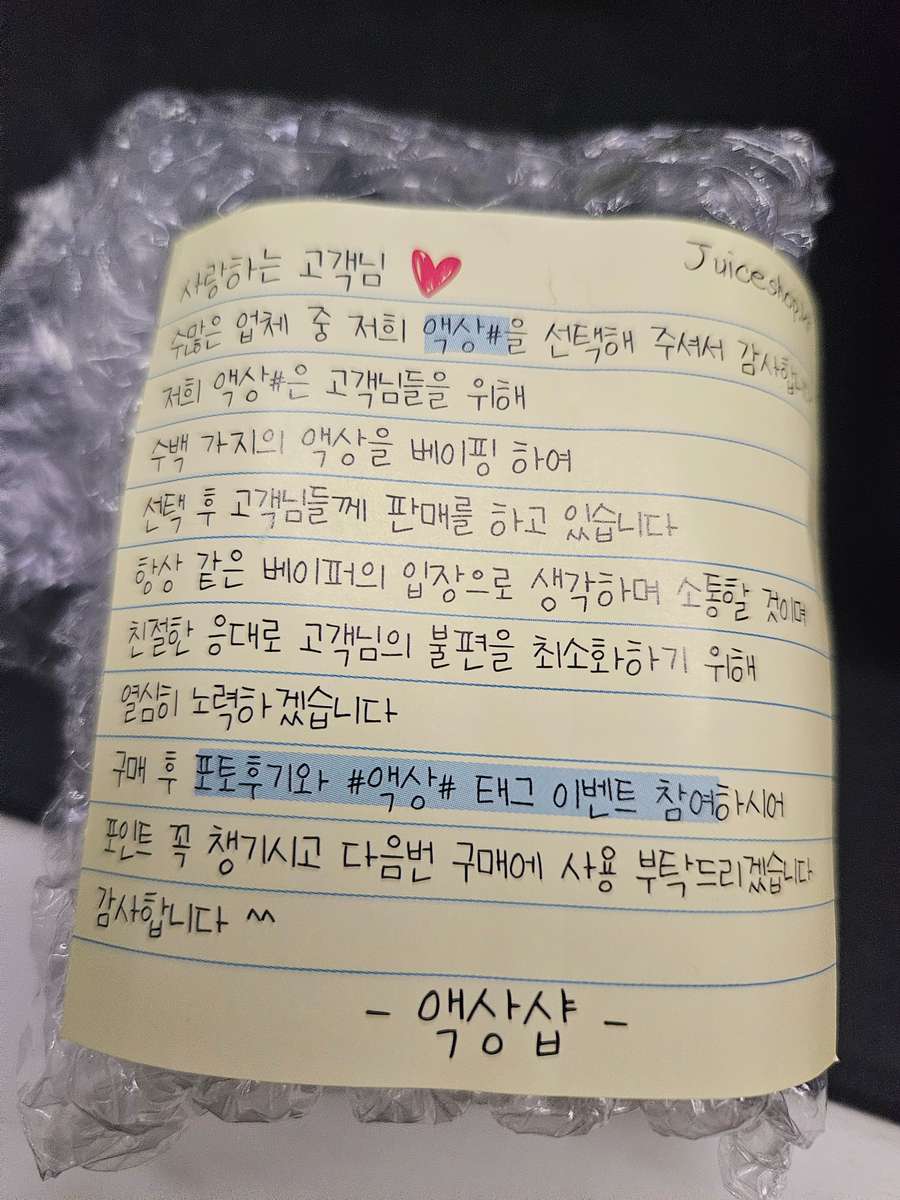 Juiceshop
사랑하는 고객님
수많은 업체 중 저희 액상#을 선택해 주셔서 감사합니다
저희 액상#은 고객님들을 위해
수백 가지의 액상을 베이핑 하여
선택 후 고객님들께 판매를 하고 있습니다
항상 같은 베이퍼의 입장으로 생각하며 소통할 것이며
친절한 응대로 고객님의 불편을 최소화하기 위해
열심히 노력하겠습니다
구매 후 포토후기와 #액상# 태그 이벤트 참여하시어
포인트 꼭 챙기시고 다음번 구매에 사용 부탁드리겠습니다
감사합니다 ^^
- 액상샵 -